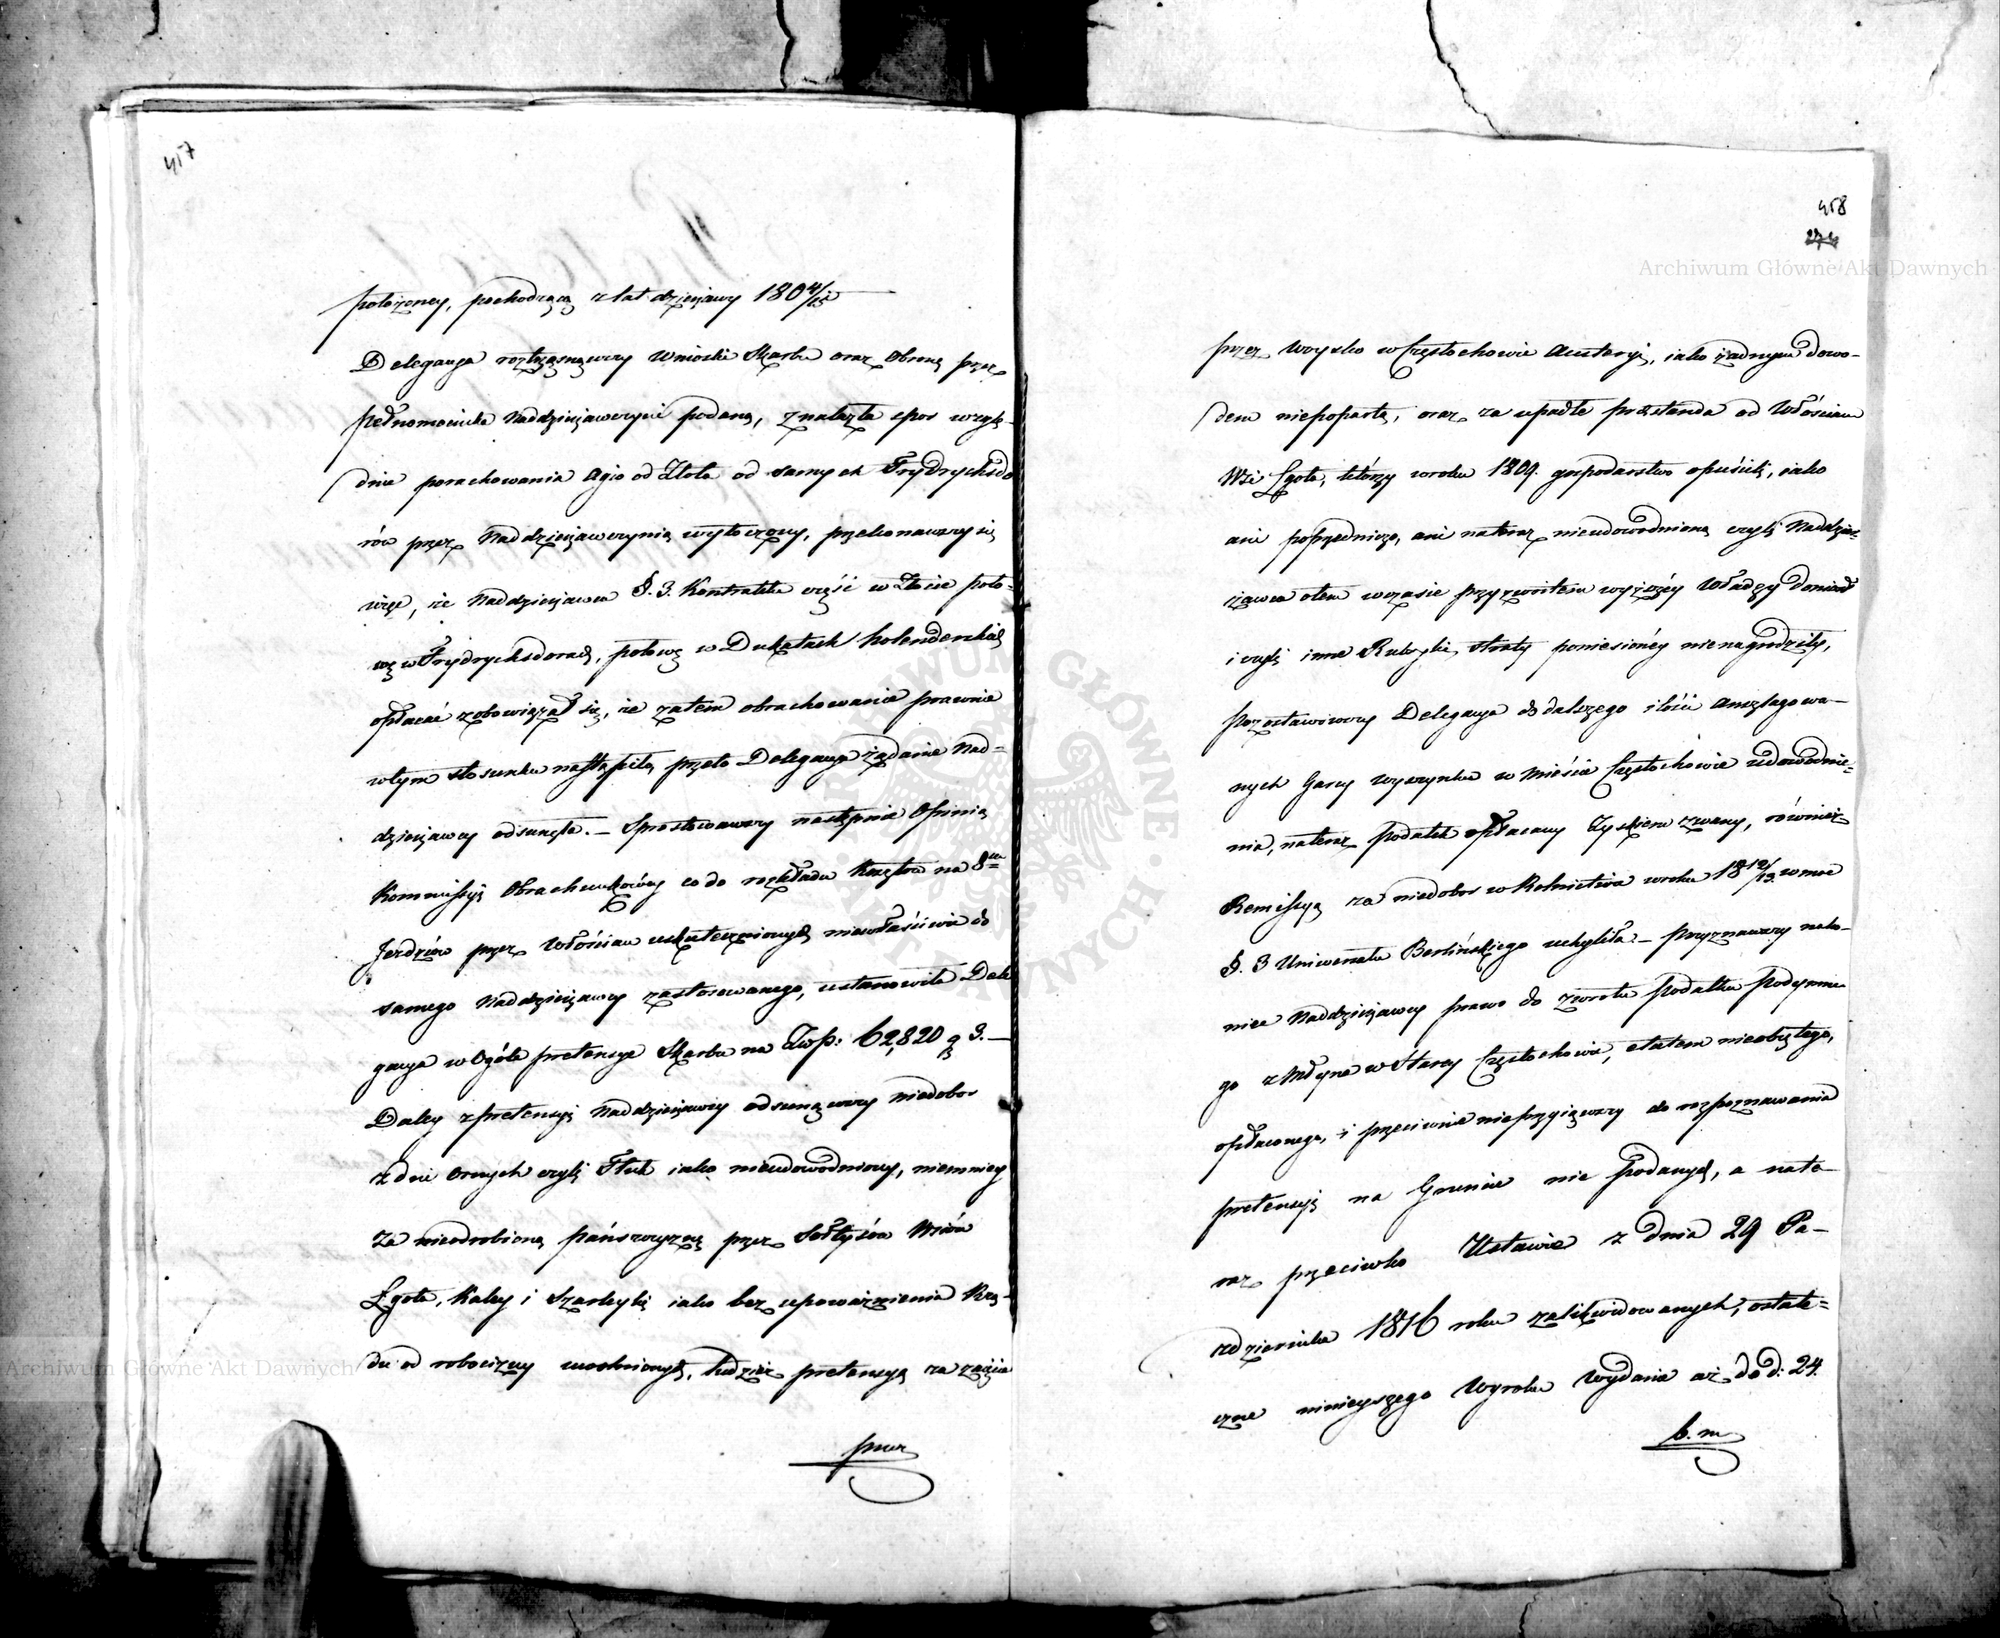 457
położoney, pochodzącą z lat dzierżawy 1804/15
Delegacya roztrząsnąwszy Wnioski Skarbu oraz Obronę przez
pełnomocnika Naddzierżawczyni podaną, znalazła spor wzglę-
dnie porachowania Agio od Złota od samych Frydrychsdo
rów przez Naddzierżawczynią wytoczony, przekonawszy się
więc, że Naddzierżawca §. 3. Kontraktu część w Złocie poło-
wę w Frydrychsdorach, połowę w Dukatach holenderskich
opłacać zobowiązał się, że zatem obrachowanie prawnie
w tym stosunku nastąpiło, przeto Delegacya żądanie Nad-
dzierżawcy odsunęła. – Sprostowawszy następnie Opinią
Kommissyi Obrachunkowéy co do rozkładu Kosztów na 8
przez Włościan uskutecznionych niewłaściwie do
samego Naddzierżawcy zastosowanego, ustanowiła Dele
gacya w Ogóle pretensye Skarbu na Złp: 62,820 g 3. –
Daley z pretensyi Naddzierżawcy odsunąwszy niedobor
z dni Ornych czyli jako nieudowodniony, niemniey
Za nieodrobioną pańszczyznę przez Sołtysów Wsiów
Lgota, Kaley i Szarleyki iako bez upoważnienia Rzą-
du od robocizny uwolnionych, tudzież pretensyą za zajęcie
przez
458
274
przez Woysko w Częstochowie Austeryi, iako żadnym dowo-
dem niepopartą, oraz za upadłe prestanda od Włościan
Wsi Lgota, którzy w roku 1809. gospodarstwo opuścili, iako
ani poprzedniczo, ani nateraz nieudowodnioną czyli Naddzier-
żawca o tem w czasie przyzwoitem wyższéy Władzy doniosł
i czyli inne Rubryki straty poniesionéy nienagrodziły,
Pozostawiwszy Delegacya do dalszego ilości Anszlagowa-
nych Garcy wyszynku w Mieście Częstochowie udowodnie-
nia, nateraz podatek opłacany Zyskiem zwany, również
Remissyą za niedobor w Rolnictwie w roku 1812/13. w moc
§. 3 Uniwersału Berlińskiego uchyliła. – przyznawszy nako-
niec Naddzierżawcy prawo do zwrotu podatku podymne
go z Młyna w Starey Częstochowie, etatem nieobiętego,
opłaconego, i przeciwnie nieprzyiąwszy do rozpoznawania
pretensyi na Gruncie nie podanych, a nate-
raz przeciwko Ustawie z dnia 29 Pa-
zdziernika 1816 roku zalikwidowanych, ostate-
czne ninieyszego Wyroku Wydanie aż do d: 24.
b. m.
Archiwum Główne Akt Dawnych
Archiwum Główne Akt Dawnych
ARCHIWUM GŁÓWNE AKT DAWNYCH